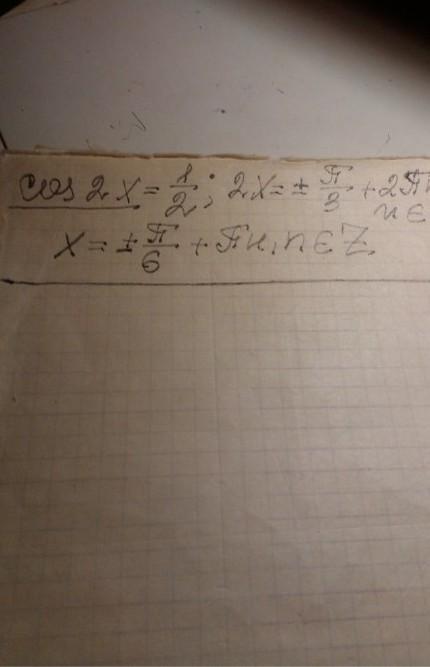 cos 2x = 1/2; 2x = ± π/3 + 2πn
n ∈
x = ± π/6 + πn, n ∈ Z